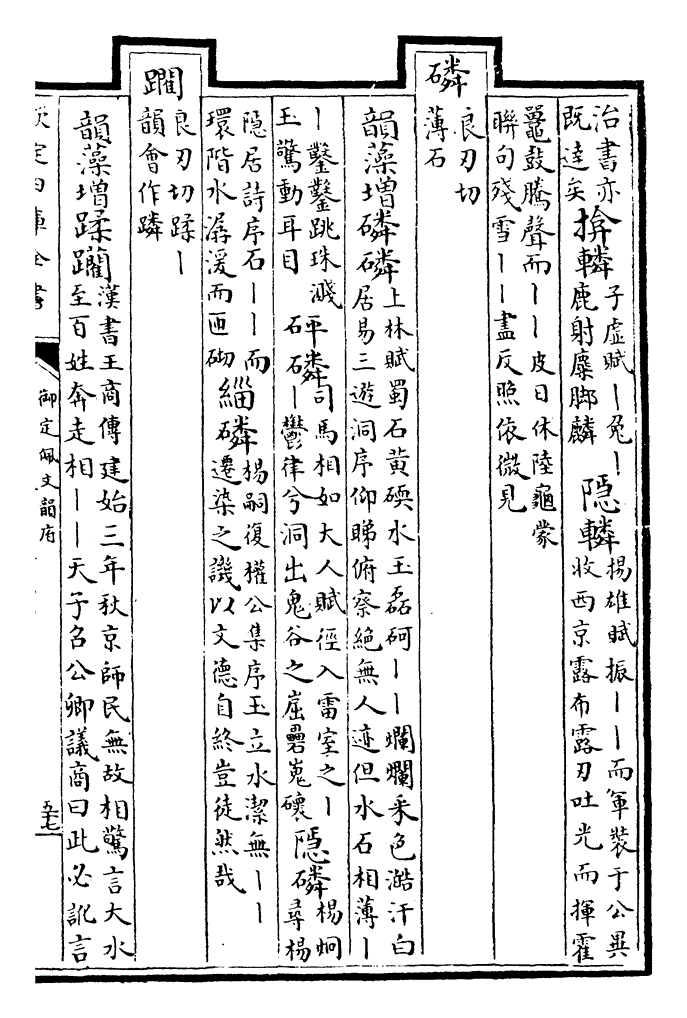 治書亦
既逹矣
揜轔
子虛賦丨兔丨
鹿射麋脚麟
隱轔
揚雄賦振丨丨而軍裝于公異
收西京露布露刃吐光而揮霍
鼉鼓騰聲而丨丨皮日休陸龜蒙
聯句殘雪丨丨盡反照依微見
磷
良刃切
薄石
韻藻增磷磷
上林賦蜀石黃碝水玉磊砢丨丨爛爛采色澔汗白
居易三遊洞序仰睇俯察絶無人迹但水石相薄丨
丨鑿鑿跳珠濺
玉驚動耳目
砰磷
司馬相如大人賦徑入雷室之丨
丨鬱律兮洞出鬼谷之崫礨嵬
隱磷
楊炯
尋楊
隱居詩序石丨丨而
環階水潺湲而匝砌
緇磷
楊嗣復權公集序玉立水潔無丨丨
遷染之譏以文德自終豈徒然哉
躙
良刃切蹂丨
韻會作蹸
韻藻增蹂躪
漢書王商傳建始三年秋京師民無故相驚言大水
至百姓奔走相丨丨天子召公卿議商曰此必訛言
欽定四庫全書
御定佩文韻府
五十七